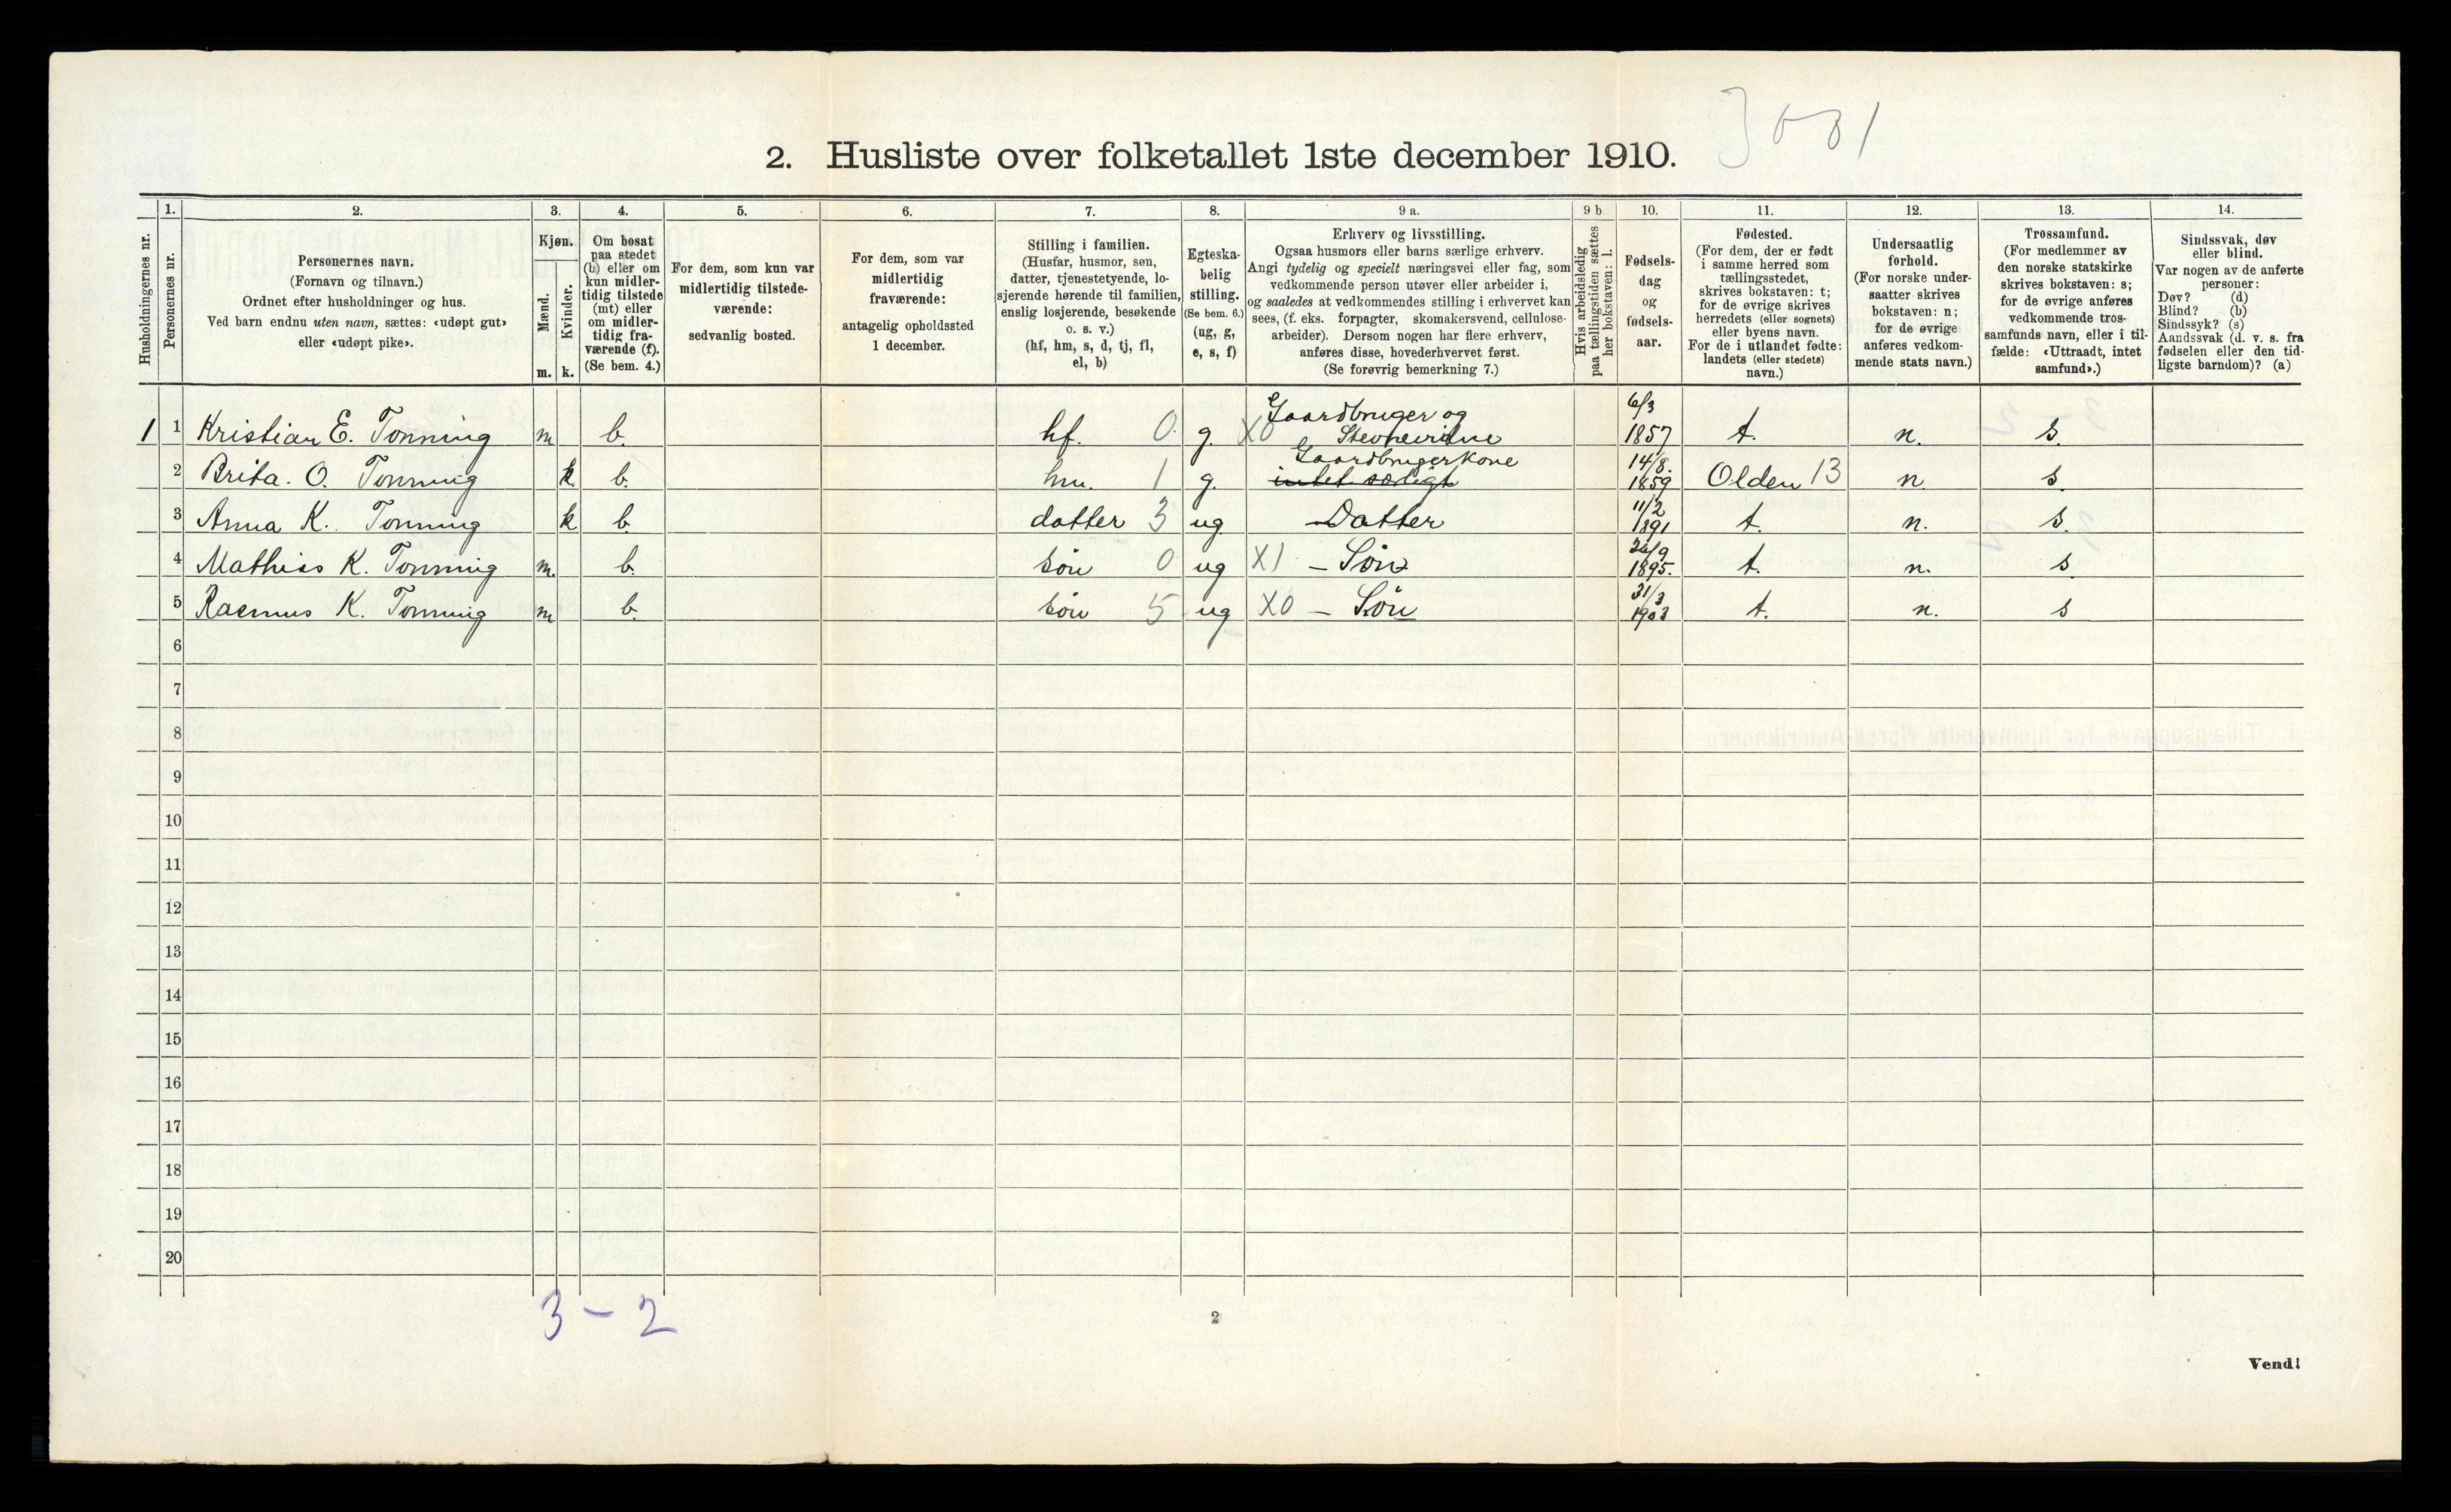 3001
2. Husliste over folketallet 1ste december 1910.
Husholdningernes nr.
1.
Personernes nr.
2.
Personernes navn.
(Fornavn og tilnavn.)
Ordnet efter husholdninger og hus.
Ved barn endnu uten navn, sættes: «udøpt gut»
eller «udøpt pike».
3.
Kjøn.
Mænd.
Kvinder.
m. k.
4.
Om bosat
paa stedet
(b) eller om
kun midler-
tidig tilstede
(mt) eller
om midler-
tidig fra-
værende (f).
(Se bem. 4.)
5.
For dem, som kun var
midlertidig tilstede-
værende:
sedvanlig bosted.
6.
For dem, som var
midlertidig
fraværende:
antagelig opholdssted
1 december.
7.
Stilling i familien.
(Husfar, husmor, søn,
datter, tjenestetyende, lo-
sjerende hørende til familien,
enslig losjerende, besøkende
o. s. v.)
(hf, hm, s, d, tj, fl,
el, b)
8.
Egteska-
belig
stilling.
(Se bem. 6.)
(ug, g,
e, s, f)
9 a.
Erhverv og livsstilling.
Ogsaa husmors eller barns særlige erhverv.
Angi tydelig og specielt næringsvei eller fag, som
vedkommende person utøver eller arbeider i,
og saaledes at vedkommendes stilling i erhvervet kan
sees, (f. eks. forpagter, skomakersvend, cellulose-
arbeider). Dersom nogen har flere erhverv,
anføres disse, hovederhvervet først.
(Se forøvrig bemerkning 7.)
9 b
Hvis arbeidsledig
paa tællingstiden sættes
her bokstaven: l.
10.
Fødsels-
dag
og
fødsels-
aar.
11.
Fødested.
(For dem, der er født
i samme herred som
tællingsstedet,
skrives bokstaven: t;
for de øvrige skrives
herredets (eller sognets)
eller byens navn.
For de i utlandet fødte:
landets (eller stedets)
navn.)
12.
Undersaatlig
forhold.
(For norske under-
saatter skrives
bokstaven: n;
for de øvrige
anføres vedkom-
mende stats navn.)
13.
Trossamfund.
(For medlemmer av
den norske statskirke
skrives bokstaven: s;
for de øvrige anføres
vedkommende tros-
samfunds navn, eller i til-
fælde: «Uttraadt, intet
samfund».)
14.
Sindssvak, døv
eller blind.
Var nogen av de anførte
personer:
Døv? (d)
Blind? (b)
Sindssyk? (s)
Aandssvak (d. v. s. fra
fødselen eller den tid-
ligste barndom)? (a)
1 1 Kristian E. Tonning m b. hf. 0. g. X0 Gaardbruger og 6/3 1857 t. n. s.
2 Brita. O. Tonning k b. hm. 1 g. Gaardbrugerkone intet særligt 14/8. 1859 Olden 13 n. s.
3 Anna K. Tonning k b. datter 3 ug Datter 11/2 1891 t. n. s.
4 Mathias K. Tonning m. b. søn 0 ug X1 – Søn 1895. t. n. s.
5 Rasmus K. Tonning m b. søn 5 ug X0 – Søn 31/3 1903 t. n. s
6
7
8
9
10
11
12
13
14
15
16
17
18
19
20
3 – 2
2
Vend!